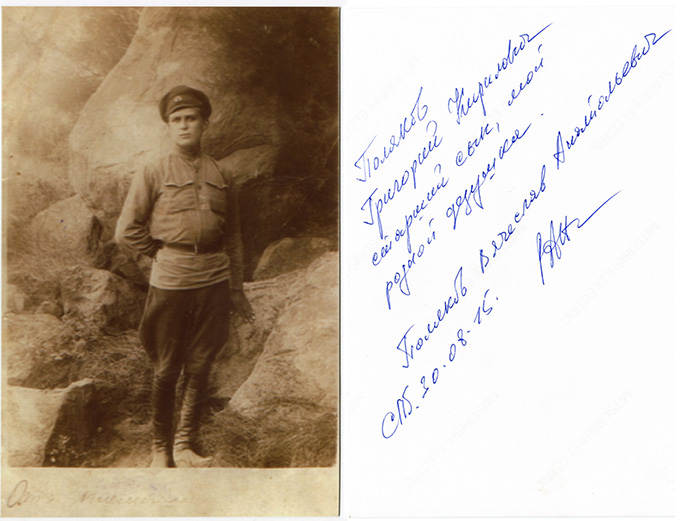 Поляков
Григорий Кирилович
старший сын, мой
родной дедушка.
Поляков Вячеслав Анатольевич
СПБ. 30.08.15.